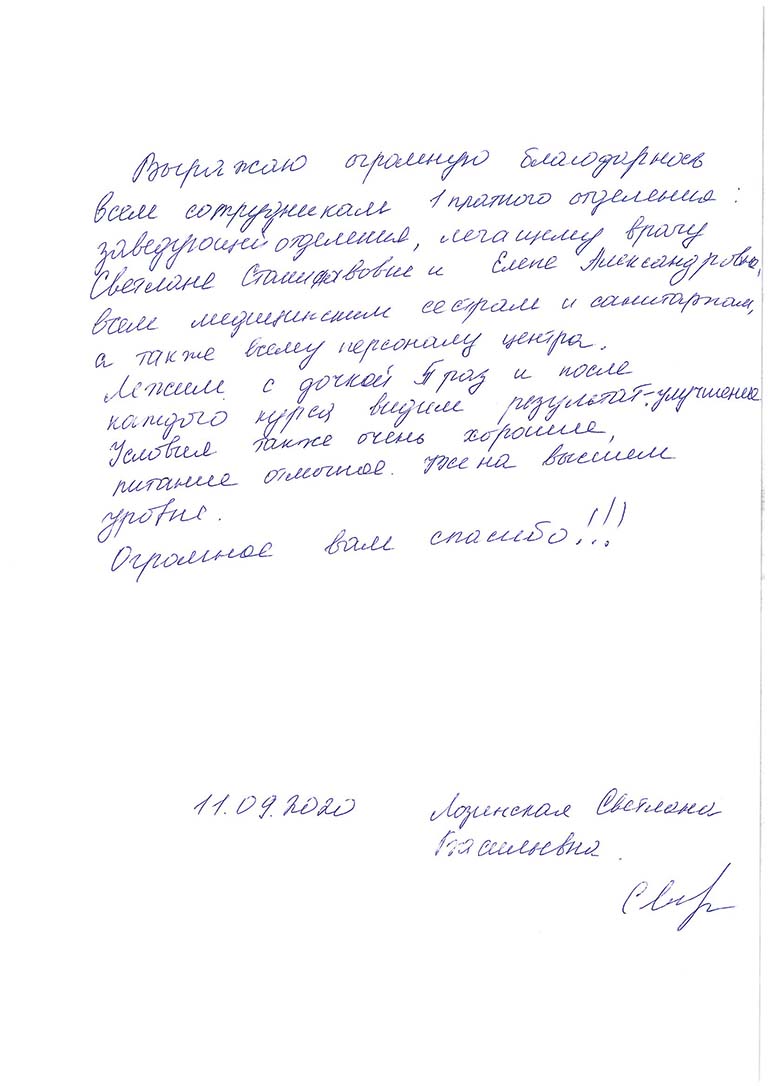 Выражаю огромную благодарность
всем сотрудникам 1 платного отделения:
заведующей отделения, лечащему врачу
Светлане Станиславовне и Елене Александровне,
всем медицинским сестрам и санитаркам,
а также всему персоналу центра.
Лежим с дочкой раз и после
каждого курса видим результат-улучшение
Условия также очень хорошие,
питание отличное. на высшем
уровне.
Огромное вам спасибо!!!
11.09.2020 Лозинская Светлана
Васильевна